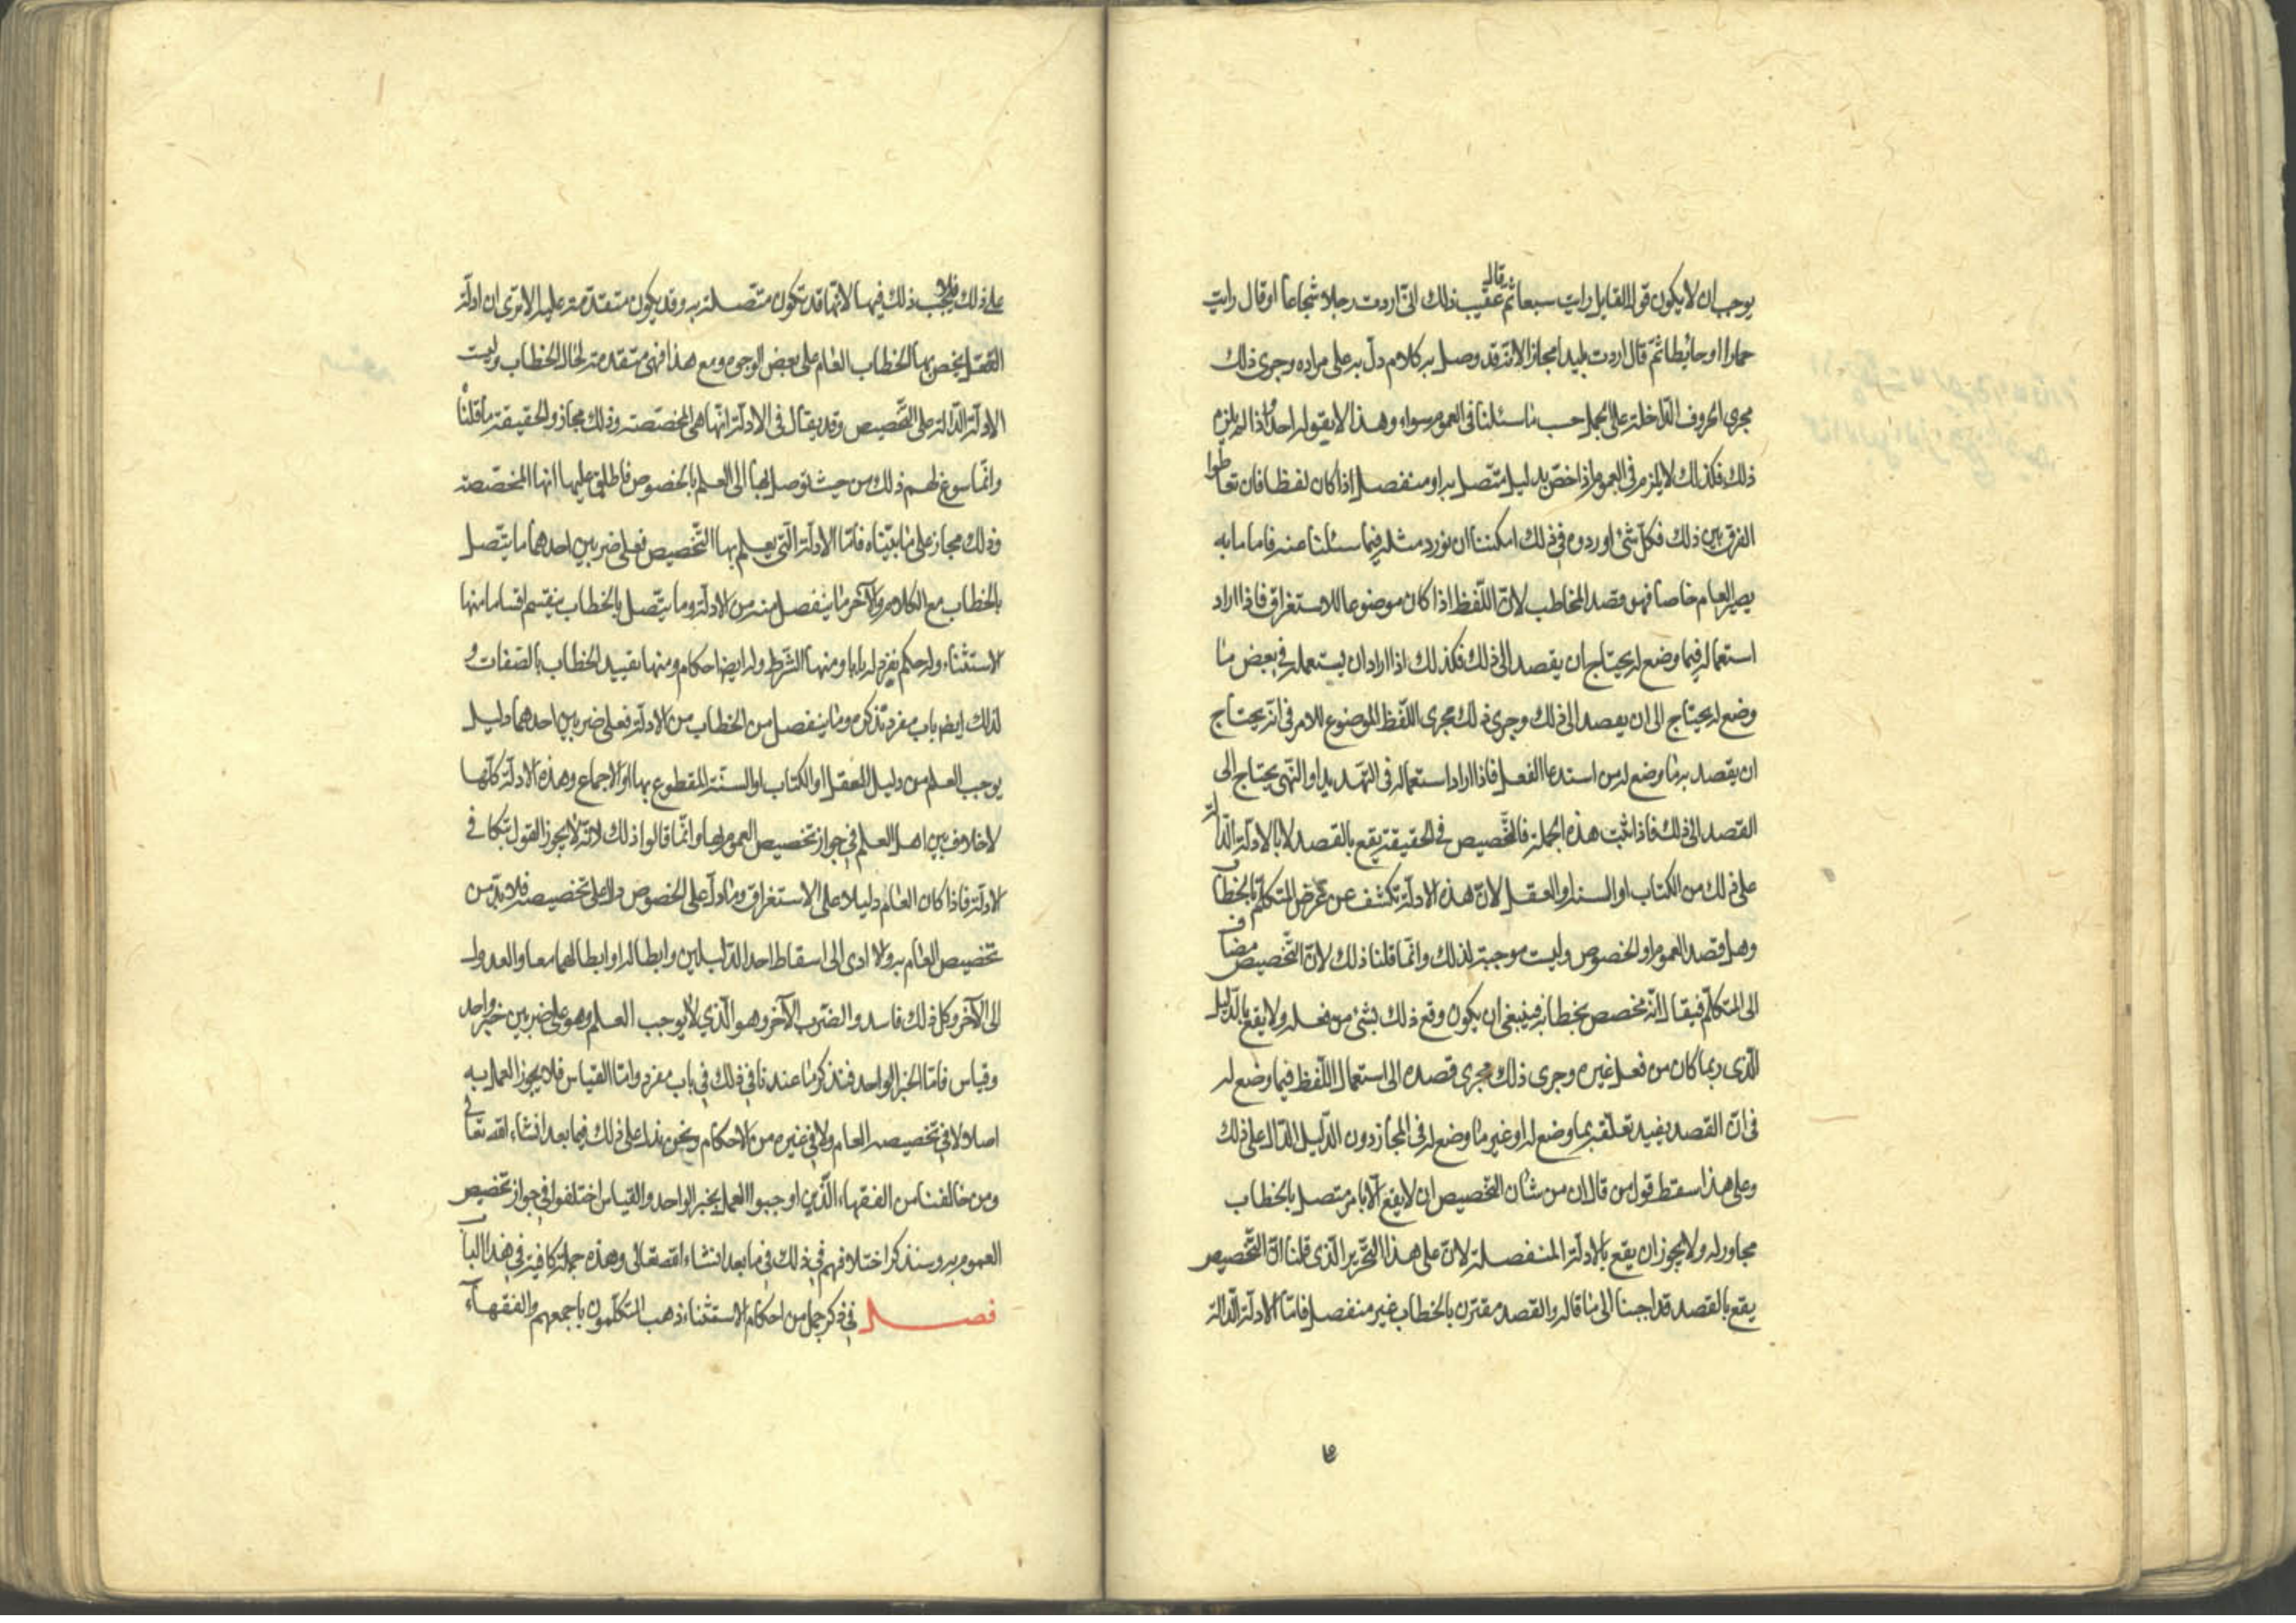 يوجب ان لا يكون قول القايل رايت سبعا ثم قال عقيب ذلك انى اردت رجلا شجاعا او قال رايت
حمارا او حائطا ثم قال اردت بليدا مجازا لانه قد وصل به كلام دل به على مراده وجرى ذلك
مجرى الحروف الداخلة على الجمل حسب ما سئلنا فى العموم سواء وهذا لا يقوله احد واذا لم يلزم
ذلك فكذلك لا يلزم فى العموم اذا خص بدليل متصل به او منفصل اذا كان لفظا فان تعاطوا
الفرق بين ذلك فكل شئ اوردوه فى ذلك امكننا ان نورد مثله فيما سئلنا عنه فاما ما به
يصير العام خاصا فهو قصد المخاطب لان اللفظ اذا كان موضوعا للاستغراق فاذا اراد
استعماله فيما وضع له يحتاج ان يقصد الى ذلك فكذلك اذا اراد ان يستعمله فى بعض ما
وضع له يحتاج الى ان يقصد الى ذلك وجرى ذلك مجرى اللفظ الموضوع للامر فى انه يحتاج
ان يقصد به ما وضع له من استدعا الفعل فاذا اراد استعماله فى التهديد او النهى يحتاج الى
القصد الى ذلك فاذا ثبت هذه الجملة فالتخصيص فى الحقيقة يقع بالقصد لا بالادلة الدالة
على ذلك من الكتاب او السنة او العقل لان هذه الادلة تكشف عن غرض المتكلم بالخطاب
وهل قصد العموم او الخصوص وليست موجبة لذلك وانما قلنا ذلك لان التخصيص مضاف
الى المتكلم فيقال انه مخصص بخطابه فينبغى ان يكون وقع ذلك بشئ من فعله ولا يقع بالدليل
الذى ربما كان من فعل غيره وجرى ذلك مجرى قصده الى استعمال اللفظ فيما وضع له
فى ان القصد يفيد تعلقه بما وضع له او غير ما وضع له فى المجاز دون الدليل الدال على ذلك
وعلى هذا سقط قول من قال ان من شان التخصيص ان لا يقع الا بامر متصل بالخطاب
مجاور له ولا يجوز ان يقع بالادلة المنفصلة لان على هذا التحرير الذى قلنا ان التخصيص
يقع بالقصد قد اجبنا الى ما قاله والقصد مقترن بالخطاب غير منفصل فاما الادلة الدالة
على ذلك فلا يجب ذلك فيها لانها قد تكون متصلة به وقد يكون متقدمة عليه الا ترى ان ادلة
العقل يخص بها الخطاب العام على بعض الوجوه ومع هذا فهى متقدمة لحال الخطاب وليست
الادلة الدالة على التخصيص وقد يقال فى الادلة انها هى المخصصة وذلك مجاز والحقيقة ما قلناه
وانما سوغ لهم ذلك من حيث توصل بها الى العلم بالخصوص فاطلق عليها انها المخصصة
وذلك مجاز على ما بيناه فاما الادلة التى يعلم بها التخصيص فعلى ضربين احدهما ما يتصل
بالخطاب مع الكلام والآخر ما ينفصل منه من الادلة وما يتصل بالخطاب ينقسم اقساما منها
الاستثناء وله حكم نفرد له بابا ومنها الشرط وله ايضا احكام ومنها تقييد الخطاب بالصفات و
لذلك ايضا باب مفرد نذكره وما ينفصل من الخطاب من الادلة فعلى ضربين احدهما دليل
يوجب العلم من دليل العقل او الكتاب او السنة المقطوع بها او الاجماع وهذه الادلة كلها
لا خلاف بين اهل العلم فى جواز تخصيص العموم بها وانما قالوا ذلك لانه لا يجوز القول بتكافى
الادلة فاذا كان العام دليلا على الاستغراق وما دل على الخصوص دالا على تخصيصه فلا بد من
تخصيص العام به والا ادى الى اسقاط احد الدليلين وابطاله او ابطالهما معا والعدول
الى الآخر وكل ذلك فاسد والضرب الآخر وهو الذي لا يوجب العلم وهو على ضربين خبر واحد
وقياس فاما الخبر الواحد فنذكر ما عندنا فى ذلك فى باب مفرد واما القياس فلا يجوز العمل به
اصلا لا فى تخصيصه العام ولا فى غيره من الاحكام ونحن ندل على ذلك فيما بعد انشاء الله تعالى
ومن خالفنا من الفقهاء الذين اوجبوا العمل بخبر الواحد والقياس اختلفوا فى جواز تخصيص
العموم به وسنذكر اختلافهم فى ذلك فى ما بعد انشاء الله تعالى وهذه جملة كافية فى هذا الباب
فصل فى ذكر جمل من احكام الاستثناء ذهب المتكلمون باجمعهم والفقهاء